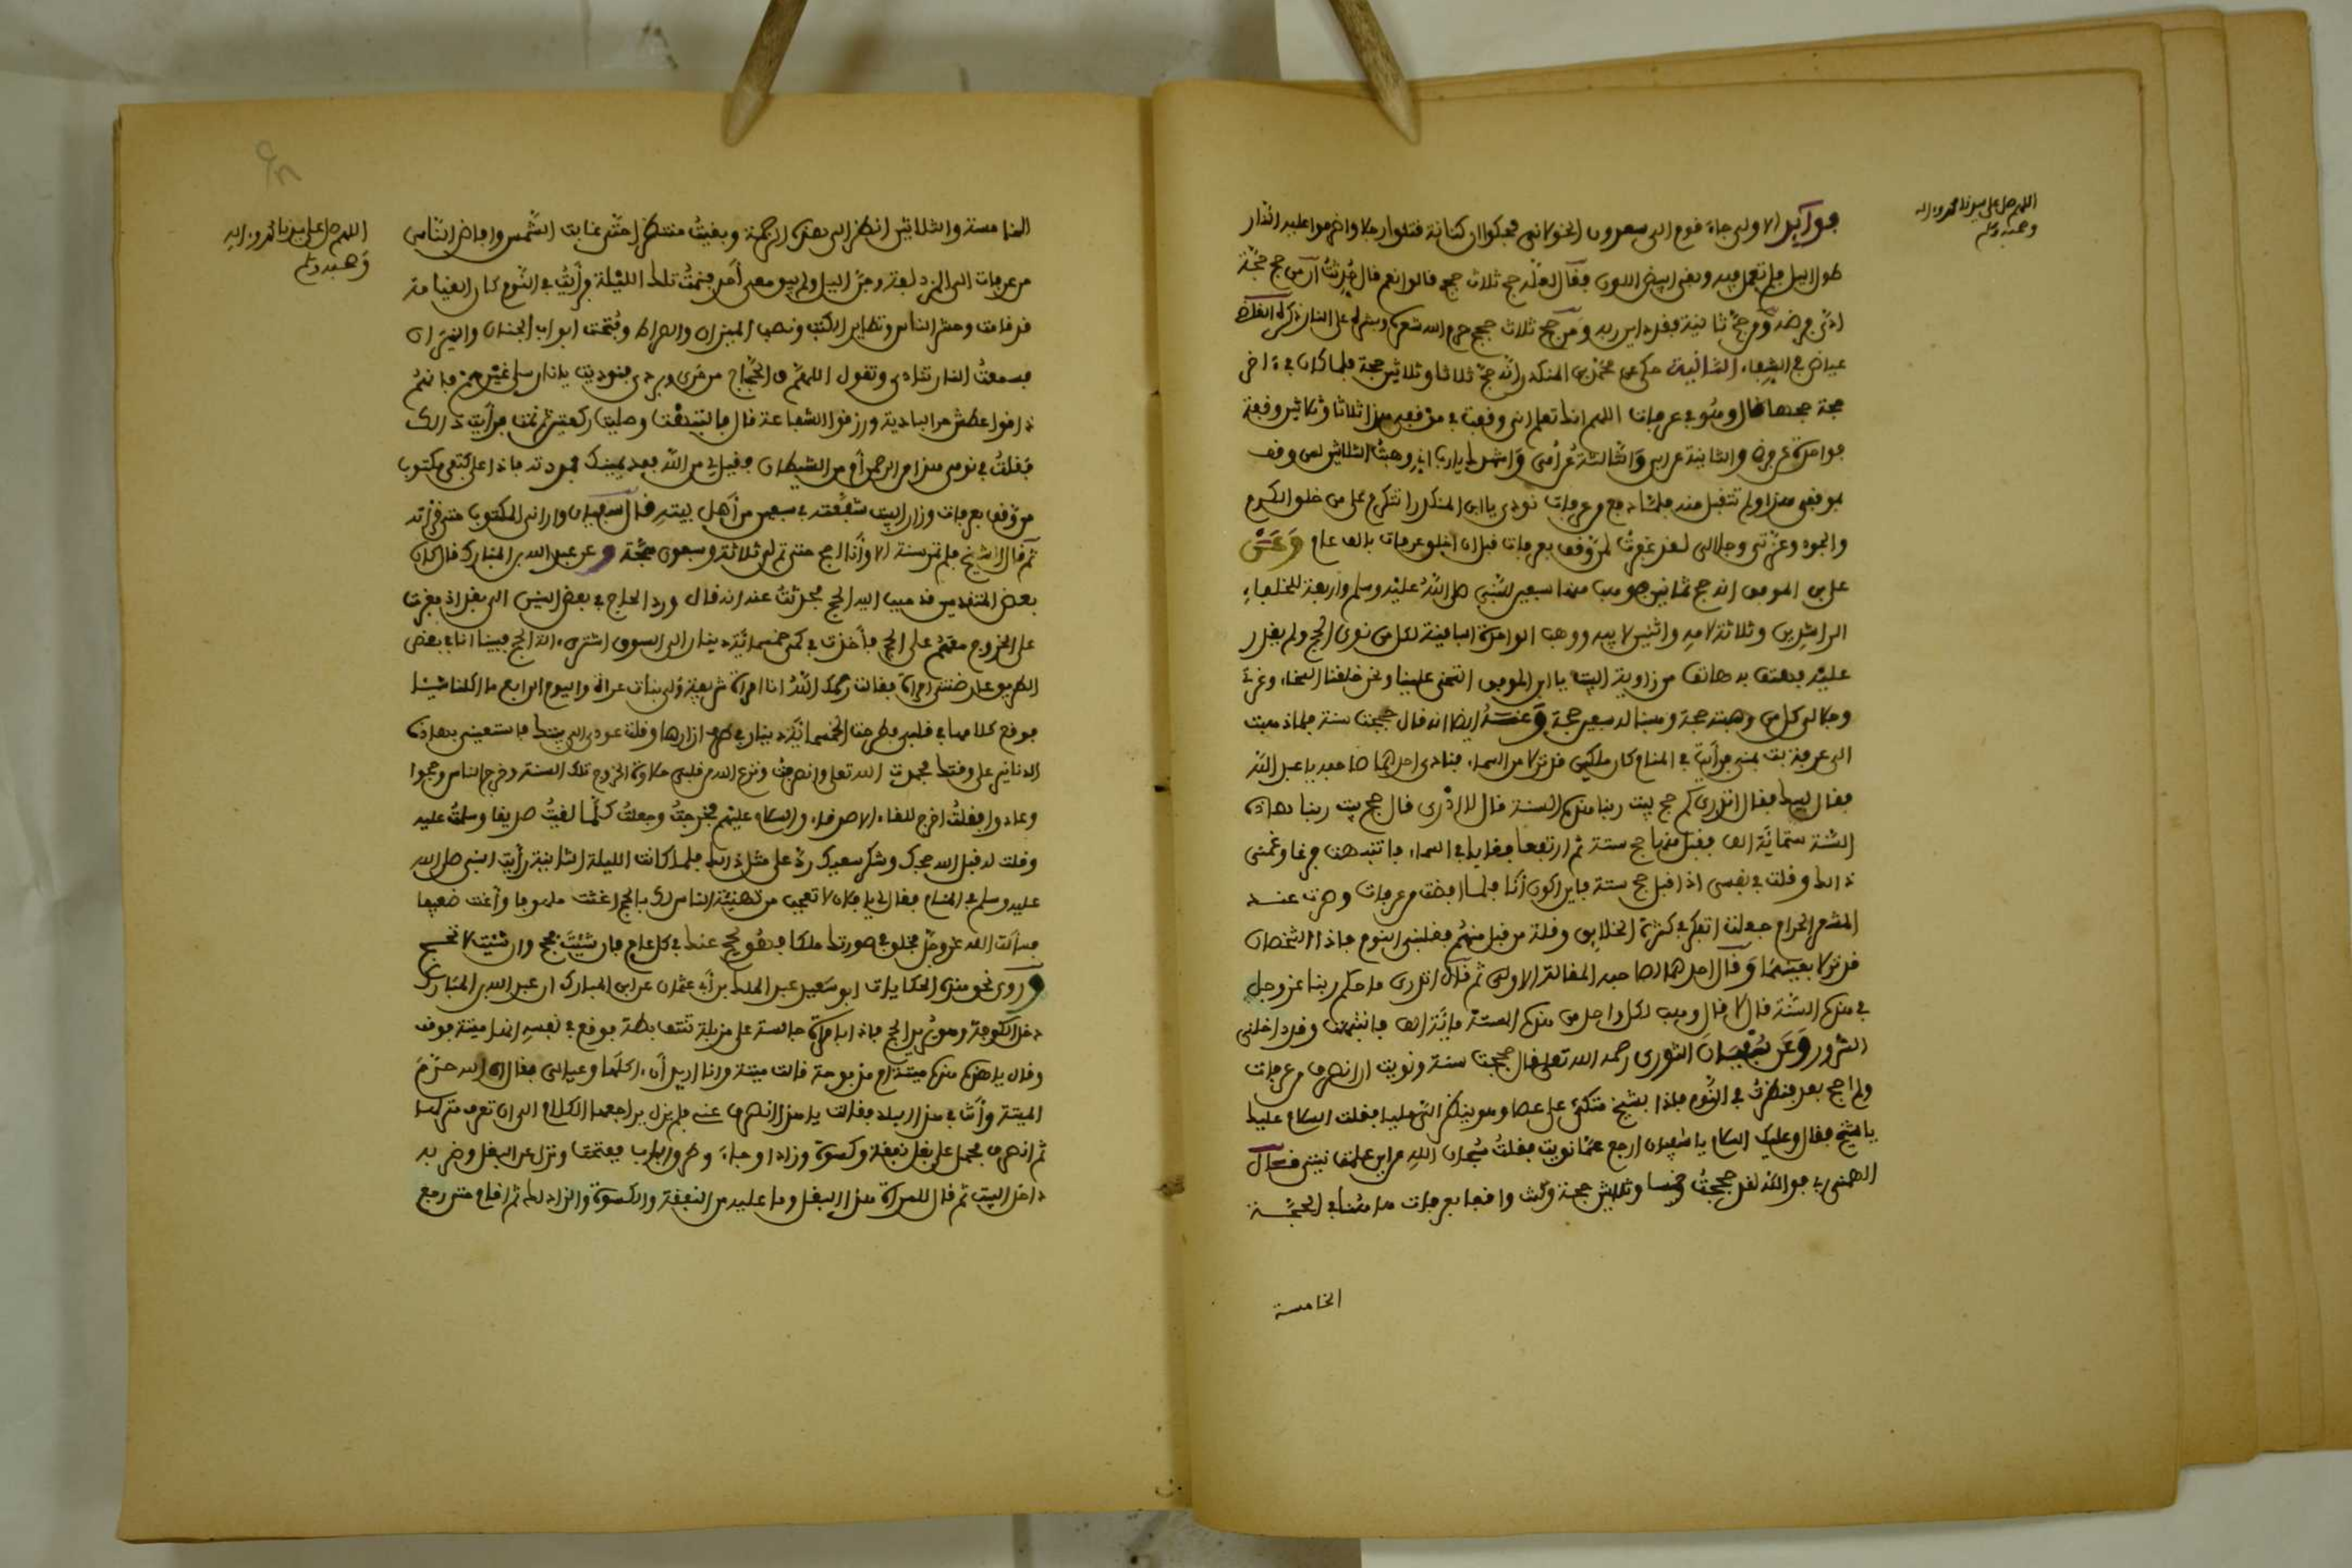 اللهم صل على سيدنا محمد وءاله
وصحبه وسلم
فوائد الاولى جاء قوم الى سعدون الخولاني فحكوا ان كتامة قتلوا رجلا واضرموا عليه النار
طول الليل فلم تعمل فيه وبقي ابيض اللون فقال لعله حج ثلاث حجج قالوا نعم قال حدثت ان من حج حجة
ادى فرضه ومن حج ثانية فقد داين ربه ومن حج ثلاث حجج حرم الله شعره وبشره على النار ذكره القاضي
عياض في الشفاء الثانية حكي عن محمد بن المنكدر انه حج ثلاثا وثلاثين حجة فلما كان في ءاخر
حجة حجها قال وهو في عرفات اللهم انك تعلم اني وقفت في موقفي هذا ثلاثا وثلاثين وقفة
فواحدة عن فرضي والثانية عن ابي والثالثة عن امي واشهدك يا رب اني وهبت الثلاثين لمن وقف
بموقفي هذا ولم تتقبل منه فلما دفع من عرفات نودي يا ابن المنكدر اتتكرم على من خلق الكرم
والجود وعزتي وجلالي لقد غفرت لمن وقف بعرفات قبل ان اخلق عرفات بالف عام وعن
علي بن الموفق انه حج ثمانين فوهب منها سبعين للنبي صلى الله عليه وسلم واربعة للخلفاء
الراشدين وثلاثة لامه واثنين لابيه ووهب الواحدة الباقية لكل من نوى الحج ولم يقدر
عليه فهتف به هاتف من زاوية البيت يا ابن الموفق اتتمنى علينا ونحن خلقنا السخاء وعزتي
وجلالي كل من وهبته حجة وهبنا له سبعين حجة وعنه ايضا انه قال حججت سنة فلما ذهبت
الى عرفة بت بمنى فرأيت في المنام كان ملكين قد نزلا من السماء فنادى احدهما صاحبه يا عبد الله
فقال لبيك فقال اتدري كم حج بيت ربنا هذه السنة قال لا ادري قال حج بيت ربنا هذه
السنة ستمائة الف فقبل منها حج ستة ثم ارتفعا فغابا في السماء فانتبهت فزعا وغمني
ذالك وقلت في نفسي اذا قبل حج ستة فاين اكون أنا فلما افضت من عرفات وصرت عنـد
المشعر الحرام جعلت اتفكر في كثرة الخلايق وقلة من قبل منهم فغلبني النوم فاذا الشخصان
قد نزلا بعينهما وقال احدهما لصاحبه المقالة الاولى ثم قال اتدري ما حكم ربنا عز وجل
في هذه السنة قال لا قال وهب لكل واحد من هذه الستة مائة الف فانتبهت وقد داخلني
السرور وعن سفيان الثوري رحمه الله تعلى قال حججت سنة ونويت ان انصرف من عرفات
ولم احج بعد فنظرت في القوم فاذا بشيخ متكئ على عصا وهو ينظر الي مليا فقلت السلام عليك
يا شيخ فقال وعليك السلام يا سفيان ارجع عما نويت فقلت سبحان الله من اين علمت نيتي فقال
الهمني ربي فوالله لقد حججت خمسا وثلاثين حجة وكنت واقفا بعرفات هاهنا في الحجة
الخامسة
اللهم صل على سيدنا محمد وءاله
وصحبه وسلم
الخامسة والثلاثين انظر الى هذه الرحمة وبقيت منتظرا حتى غابت الشمس وافاض الناس
من عرفات الى المزدلفة وجن اليل ولم يبق معي أحد فنمت تلك الليلة فرأيت في النوم كان القيامة
قد قامت وحشر الناس وتطاير الكتب ونصب الميزان والصراط وفتحت ابواب الجنان والنيران
فسمعت النار تنادي وتقول اللهم ق الحجاج من حري وبردي فنوديت يا نار سلي غيرهم فانهم
ذاقوا عطش البادية ورزقوا الشفاعة قال فانتبهت وصليت ركعتين ثم نمت فرأيت ذالك
فقلت في نومي هذا من الرحمن أم من الشيطان فقيل لي من الله فمد يمينك فمددته فاذا على كتفي مكتوب
من وقف بعرفات وزار البيت شفعته في سبعين من أهل بيته قال سفيان واراني المكتوب حتى قرأته
ثم قال الشيخ فلم تمر سنة الا وأنا احج حتى تم لي ثلاثة وسبعون حجة وعن عبد الله بن المبارك قال كان
بعض المتقدمين قد حبب اليه الحج فحدثت عنه انه قال ورد الحاج في بعض السنين الى بغداد فعزمت
على الخروج معهم على الحج فأخذت في كمي خمسمائة دينار الى السوق اشتري ءالة الحج فبينا انا في بعض
الطريق عارضتني امرأة فقالت رحمك الله انا امرأة شريفة ولي بنات عراة واليوم الرابع ما اكلنا شيئا
فوقع كلامها في قلبي فطرحت الخمسمائة دينار في طرف ازارها وقلت عودي الى بيتك فاستعيني بهذه
الدنانير على وقتك فحمدت الله تعلى وانصرفت ونزع الله من قلبي حلاوة الخروج تلك السنة وخرج الناس وحجوا
وعادوا فقلت اخرج للقاء الاصدقاء والسلام عليهم فخرجت وجعلت كلما لقيت صديقا وسلمت عليه
وقلت له قبل الله حجك وشكر سعيك رد علي مثل ذالك فلما كانت الليلة الثانية رأيت النبي صلى الله
عليه وسلم في المنام فقال لي يا فلان لا تعجب من تهنئة الناس لك بالحج اغثت ملهوفا وأغنيت ضعيفا
فسألت الله عز وجل فخلق في صورتك ملكا فهو يحج عنك في كل عام فان شئت فحج وان شئت لا تحـج
وروى نحو هذه الحكايات ابو سعيد عبد الملك بن أبي عثمان عن ابن المبارك ان عبد الله بن المبارك
دخل الكوفة وهو يريد الحج فاذا بامرأة جالسة على مزبلة تنتف بطة فوقع في نفسه انها ميتة فوقف
وقال يا هذه هذه ميتة أم مذبوحة قالت ميتة وانا اريد أن ءاكلها وعيالي فقال ان الله حرم
الميتة وأنت في هذا البلد فقالت يا هذا انصرف عني فلم يزل يراجعها الكلام الى ان تعرف منزلها
ثم انصرف فحمل على بغل نفقة وكسوة وزادا وجاء وطرق الباب ففتحت ونزل عن البغل وضربه
داخل البيت ثم قال للمرأة هذا البغل وما عليه من النفقة والكسوة والزاد لك ثم اقام حتى رجع